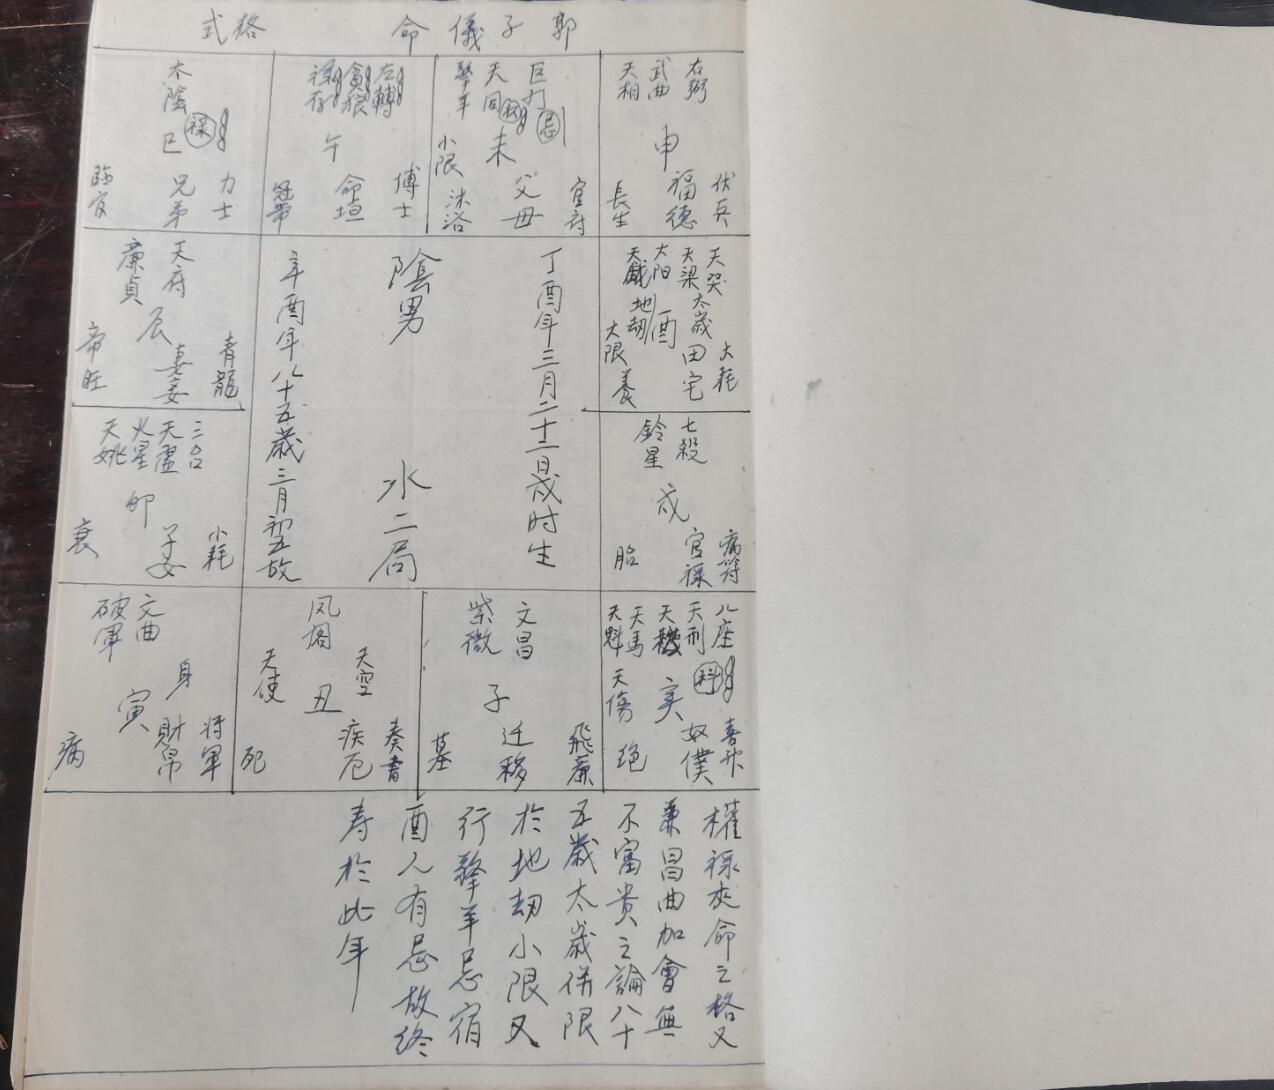 郭子儀命格式
右弼
武曲
天相
申
伏兵
福德
長生
巨门
忌
天同
权
擎羊
未
小限
官府
父母
沐浴
左輔
貪狼
祿存
午
博士
命垣
冠帶
太陰
祿
巳
力士
兄弟
臨官
天哭
天梁
太阳
地劫
太歲
酉
大耗
田宅
大限
養
丁酉年三月二十二日戌时生
陰男
水二局
辛酉年八十五歲三月初五故
天府
廉貞
辰
青龍
妻妾
帝旺
七殺
鈴星
戌
病符
官祿
胎
三台
天虛
火星
天姚
卯
小耗
子女
衰
八座
天刑
天機
科
天馬
天魁
天傷
亥
喜神
奴僕
绝
文昌
紫微
子
飛廉
迁移
墓
风阁
天空
天使
丑
奏書
疾厄
死
文曲
破軍
身
寅
将軍
財帛
病
權祿夾命之格又
兼昌曲加會無
不富贵之論八十
五歲太歲併限
於地劫小限又
行擎羊忌宿
酉人有忌故终
寿於此年